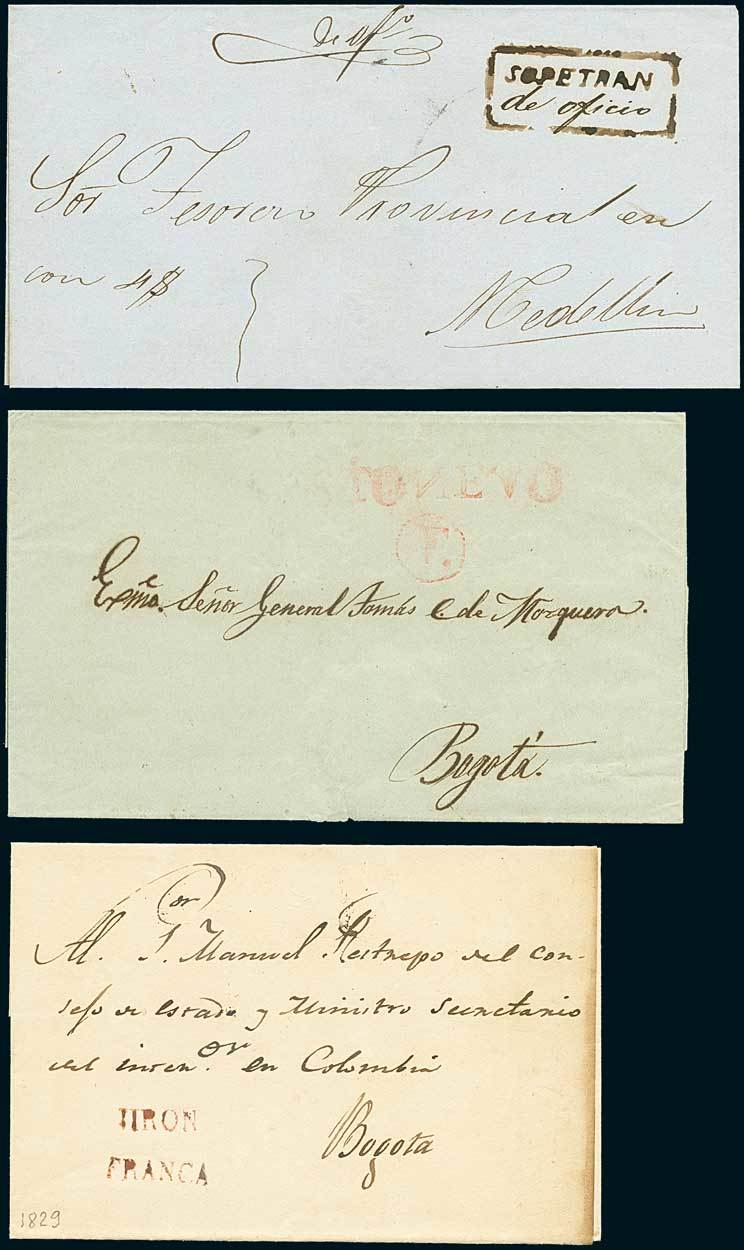 de ofo.
SOPETRAN
de oficio
Sor Tesorero Provincial en
con 4$
Medellin
F.
Exmo. Señor General Tomás C de Mosquera.
Bogotá.
Al. Sor J. Manuel Restrepo del con-
sejo de estado y Ministro Secretario
del interor. en Colombia
JIRON
FRANCA
Bogota
1829